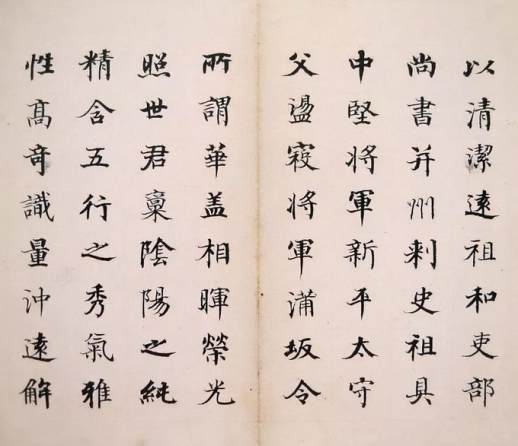 以清潔遠祖和吏部
尚書并州刺史祖具
中堅將軍新平太守
父盪寇將軍蒲坂令
所謂華盖相暉榮光
照世君稟陰陽之純
精含五行之秀氣雅
性髙奇識量沖遠解